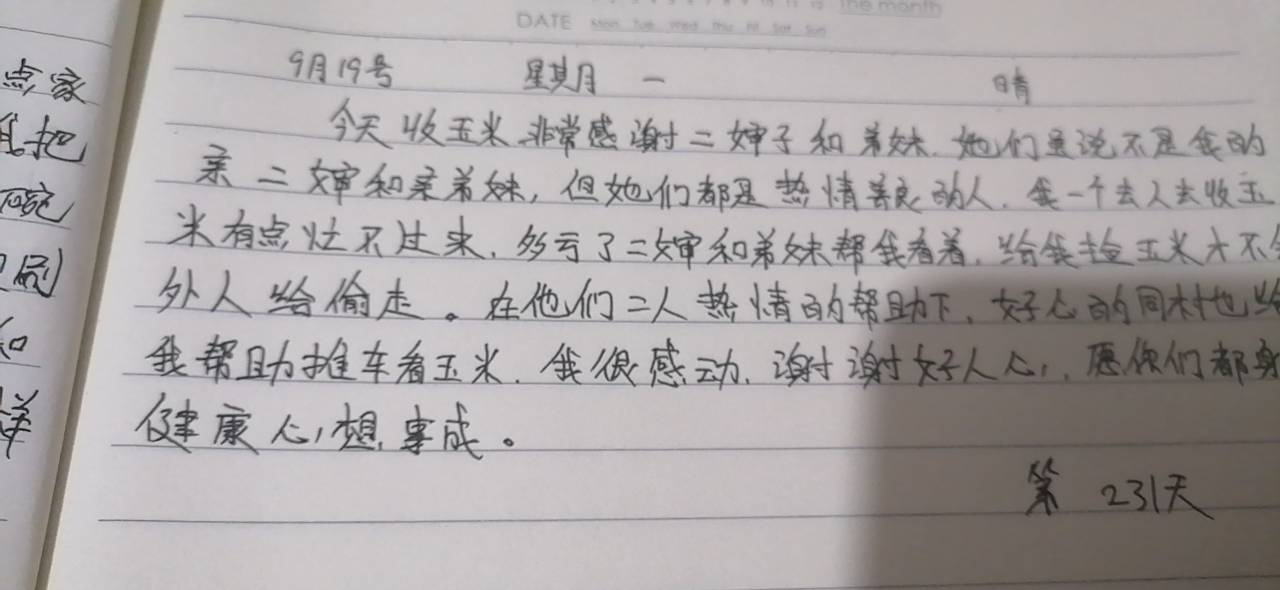 the month
DATE Mon Tue Wed Thu Fri Sat Sun
9月19号 星其月一 晴
今天收玉米.非常感谢二婶子和弟妹.她们虽说不是我的
亲二婶和亲弟妹,但她们都是热情善良的人.我一个去人去收玉
米有点忙不过来.多亏了二婶和弟妹帮我看着.给我捡玉米才不
外人给偷走。在他们二人热情的帮助下.好心的同村也给
我帮助推车看玉米.我很感动.谢谢好人心,.愿你们都身
健康心想事成。
第 231天
点家
把
碗
刷
和
样